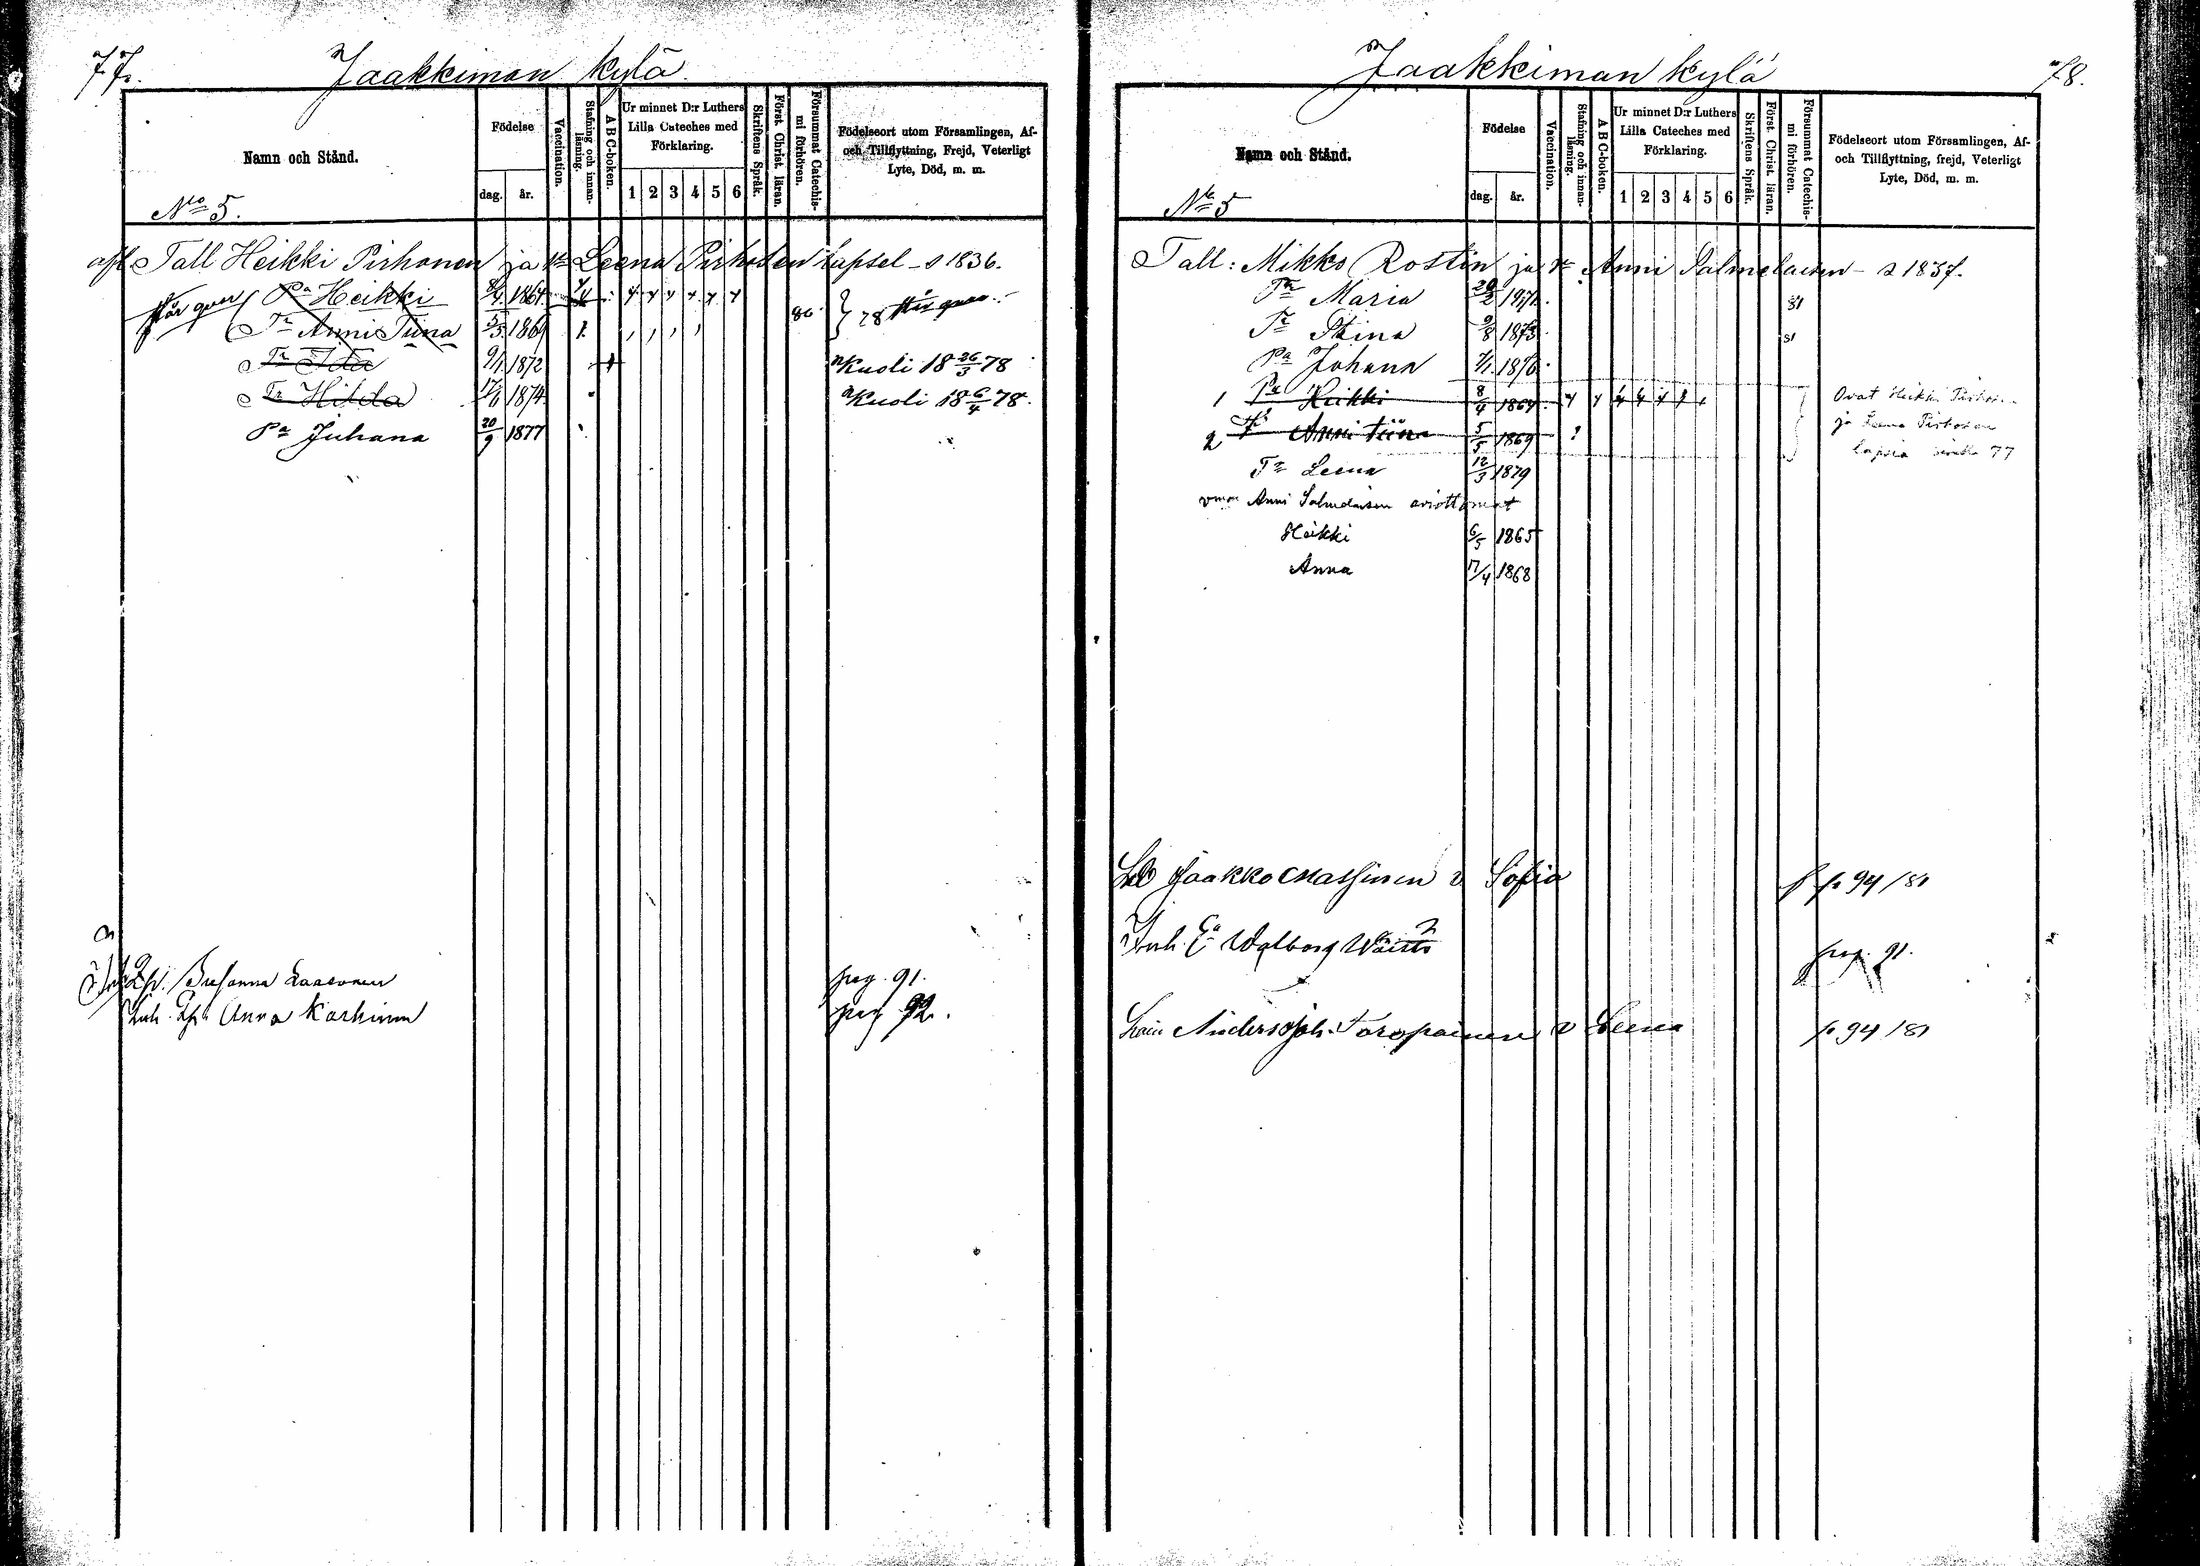 77.
Jaakkiman kylä.
Namn och Stånd.
No 5.
Födelse
dag. år.
Vaccination.
Stafning och innanläsning.
A B C-boken.
Ur minnet D:r Luthers Lilla Cateches med Förklaring.
1 2 3 4 5 6
Skriftens Språk.
Först. Christ. läran.
Försummat Catechismi förhören.
Födelseort utom Församlingen, Af- och Tillflyttning, Frejd, Veterligt Lyte, Död, m. m.
Tall Heikki Pirhonen ja Leena Pirhosen lapset s 1836.
Pa Heikki 8/4 1864 86 78
Tr Anni Tiina 5/5 1869
Tr Ida 9/1 1872 Kuoli 18 26/3 78
Tr Hilda 17/6 1874 Kuoli 18 6/4 78.
Pa Juhana 20/9 1877
Susanna Laasonen pag. 91.
Inh. Anna Karhinen pag 92.
78.
Jaakkiman kylä
Namn och Stånd.
No 5
Födelse
dag. år.
Vaccination.
Stafning och innanläsning.
A B C-boken.
Ur minnet D:r Luthers Lilla Cateches med Förklaring.
1 2 3 4 5 6
Skriftens Språk.
Först. Christ. läran.
Försummat Catechismi förhören.
Födelseort utom Församlingen, Af- och Tillflyttning, frejd, Veterligt Lyte, Död, m. m.
Tall: Mikko Rostin ja Anni Salmelaisen s 1837.
Tr Maria 20/2 1871 81
Tr Stina 9/8 1873 81
Pa Johana 7/1 1876
1 Pa Heikki 8/4 1864 Ovat Heikki Pirhosen
2 Tr Anni Tiina 5/5 1869 ja Leena Pirhosen
lapsia 77
Tr Leena 12/3 1879
Anni Salmelaisen aviottomat
Heikki 6/5 1865
Anna 17/4 1868
Jaakko Massinen v Sofia p 94/81
Inh. Walborg pag. 91.
Anders Joh. Toropainen v Leena p 94/81